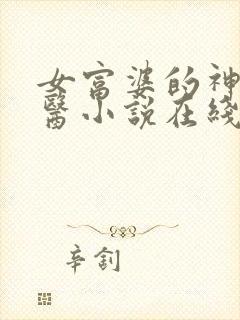 女富婆的神
醫小說在綫
辛劄